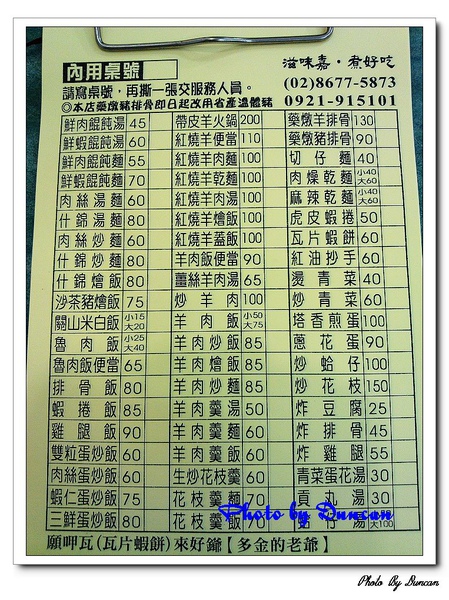 內用桌號
滋味嘉·煮好吃
請寫桌號,再撕一張交服務人員。
(02)8677-5873
◎本店藥燉豬排骨即日起改用省產溫體豬
0921-915101
鮮肉餛飩湯 45 帶皮羊火鍋 200 藥燉羊排骨 130
鮮蝦餛飩湯 60 紅燒羊便當 110 藥燉豬排骨 90
鮮肉餛飩麵 55 紅燒羊肉麵 100 切仔麵 40
鮮蝦餛飩麵 70 紅燒羊乾麵 100 肉燥乾麵 小40 大60
肉絲湯麵 60 紅燒羊肉湯 100 麻辣乾麵 小40 大60
什錦湯麵 80 紅燒羊燴飯 100 虎皮蝦捲 50
肉絲炒麵 60 紅燒羊蓋飯 100 瓦片蝦餅 60
什錦炒麵 80 羊肉飯便當 90 紅油抄手 60
什錦燴飯 80 薑絲羊肉湯 65 燙青菜 40
沙茶豬燴飯 75 炒羊肉 100 炒青菜 60
關山米白飯 小15 大20 羊肉飯 小50 大75 塔香煎蛋 100
魯肉飯 小25 大40 羊肉炒飯 85 蔥花蛋 90
魯肉飯便當 65 羊肉燴飯 85 炒蛤仔 100
排骨飯 80 羊肉炒麵 85 炒花枝 150
蝦捲飯 85 羊肉羹湯 50 炸豆腐 25
雞腿飯 90 羊肉羹麵 60 炸排骨 45
雙粒蛋炒飯 60 羊肉羹飯 60 炸雞腿 55
肉絲蛋炒飯 60 生炒花枝羹 60 青菜蛋花湯 30
蝦仁蛋炒飯 75 花枝羹麵 70 貢丸湯 30
三鮮蛋炒飯 80 花枝羹飯 70 湯 大100
Photo by Duncan
願呷瓦(瓦片蝦餅)來好鎺【多金的老爺】
Photo By Duncan